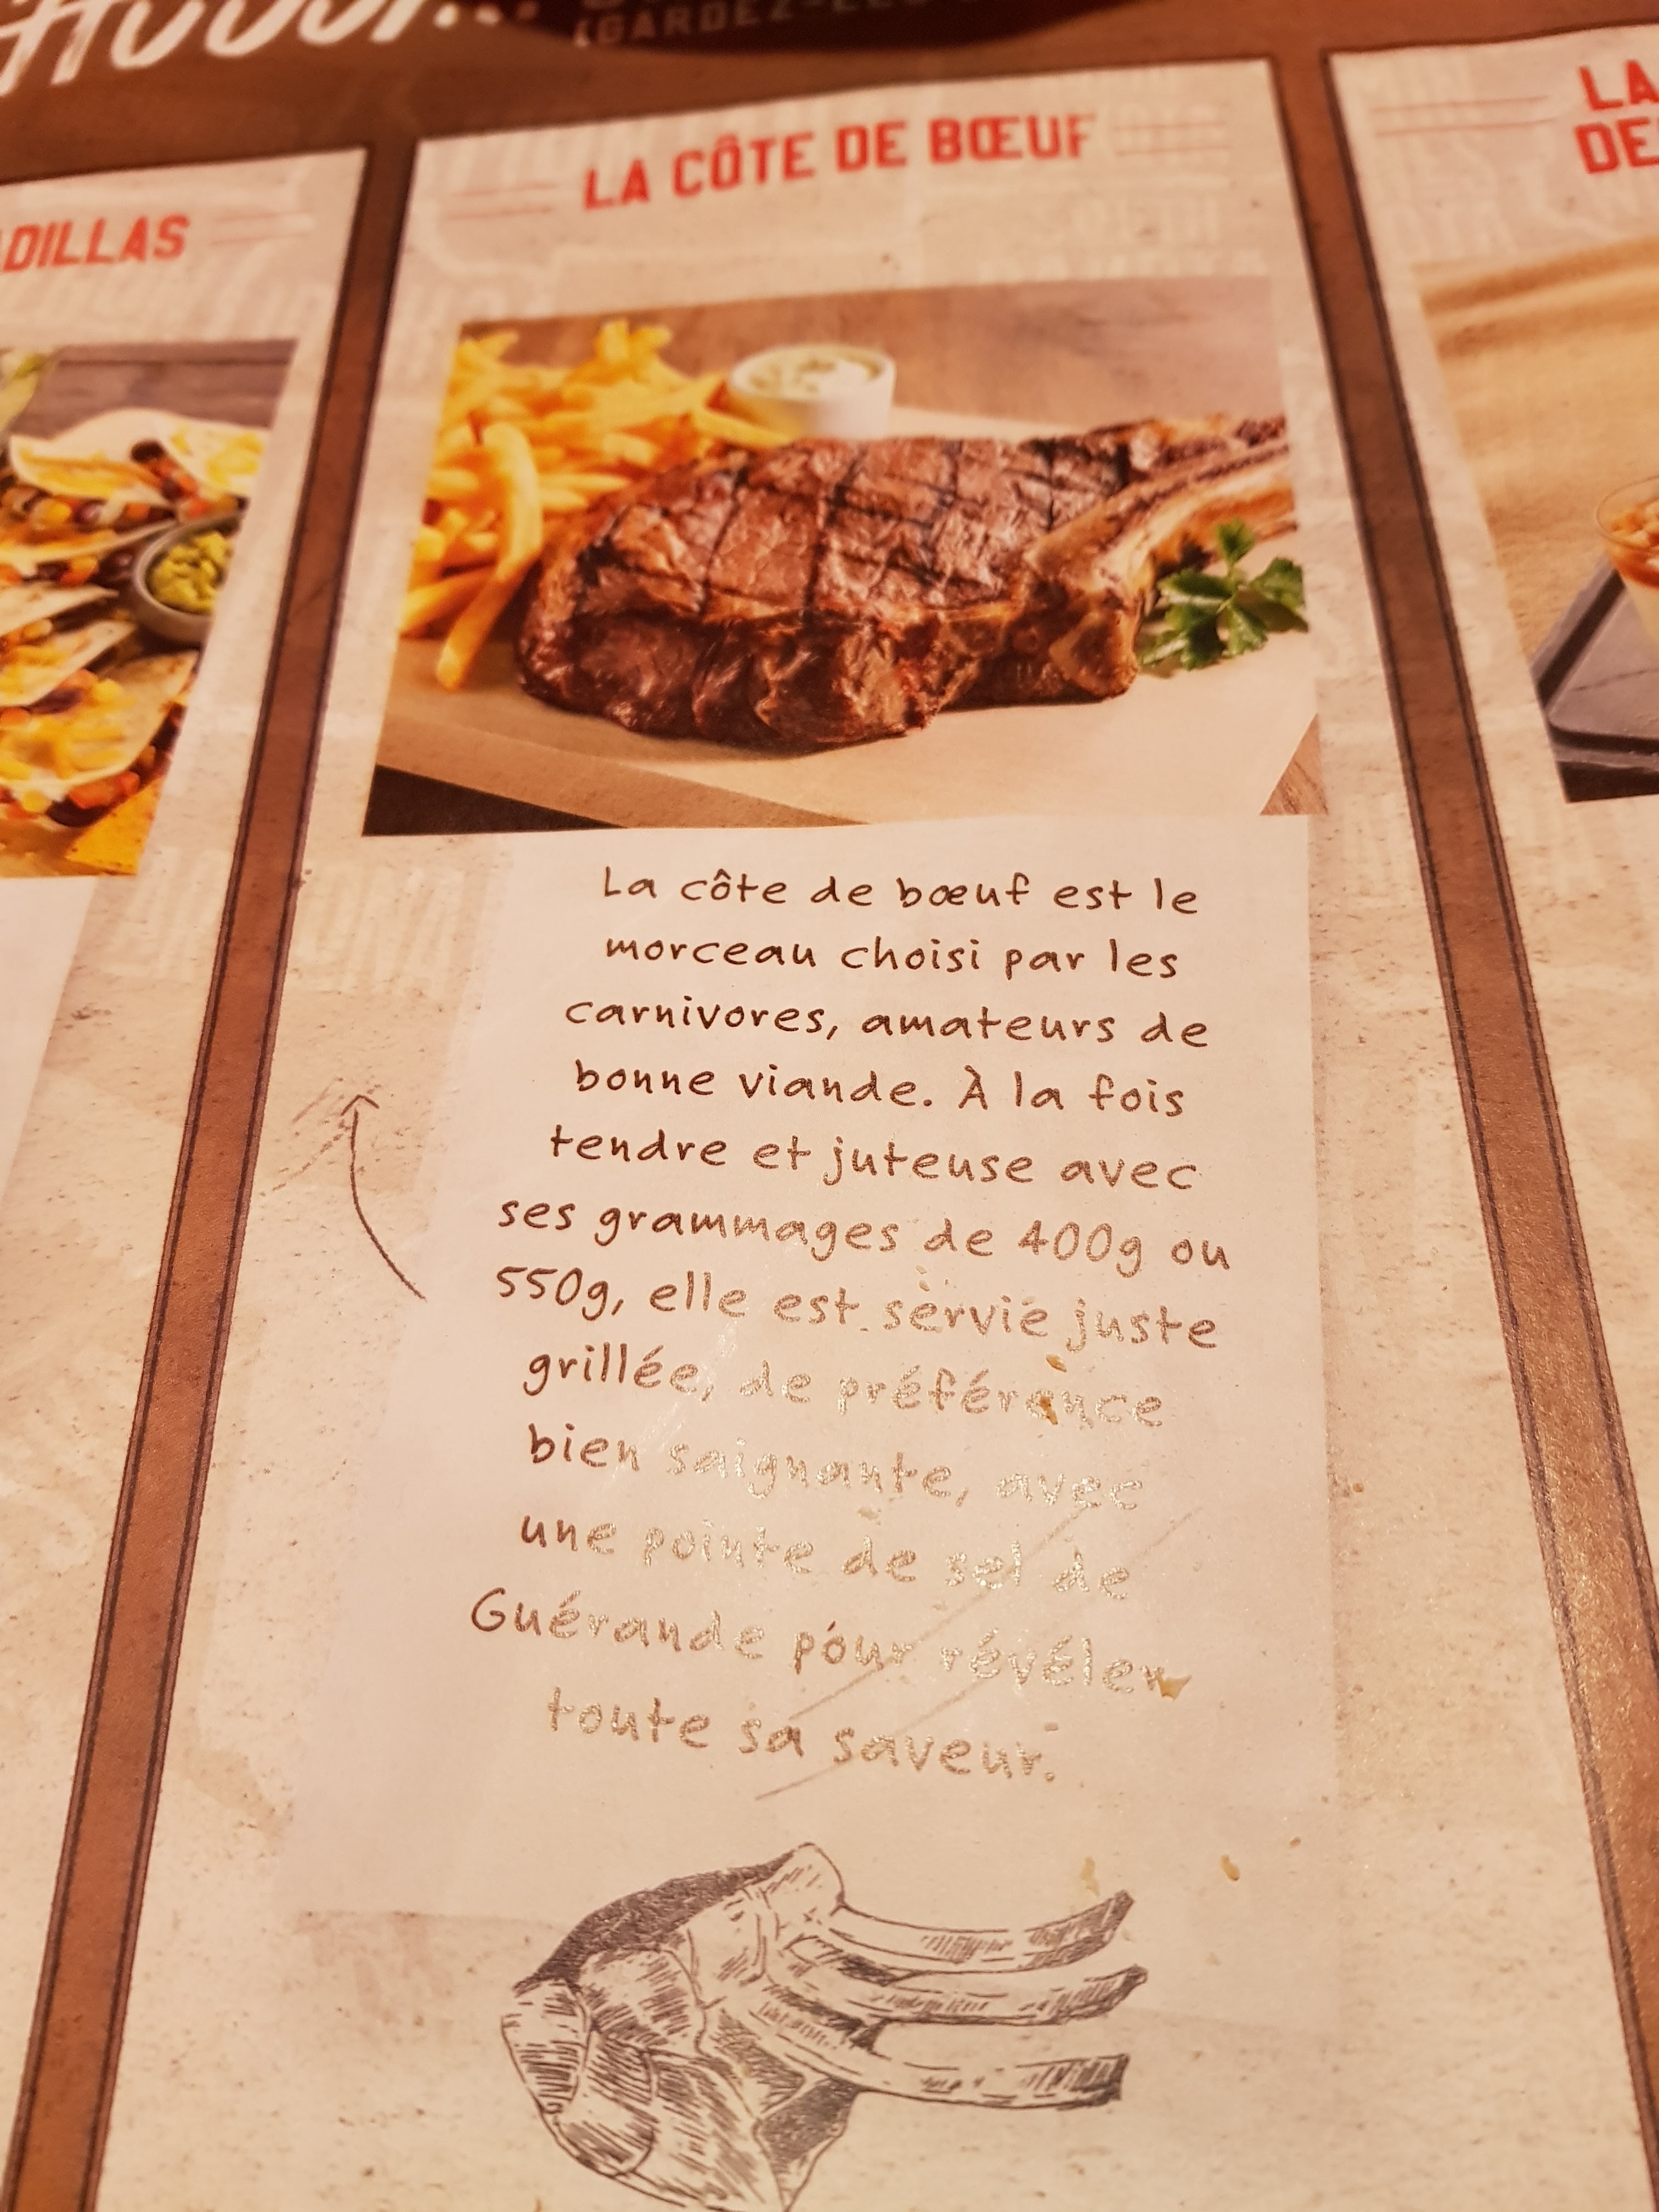 (GARDEZ-LES
ADILLAS
LA CÔTE DE BŒUF
LA
DE
La côte de bœuf est le
morceau choisi par les
carnivores, amateurs de
bonne viande. À la fois
tendre et juteuse avec
ses grammages de 400g ou
550g, elle est servie juste
grillée, de préférence
bien saignante, avec
une pointe de sel de
Guérande pour révéler
toute sa saveur.